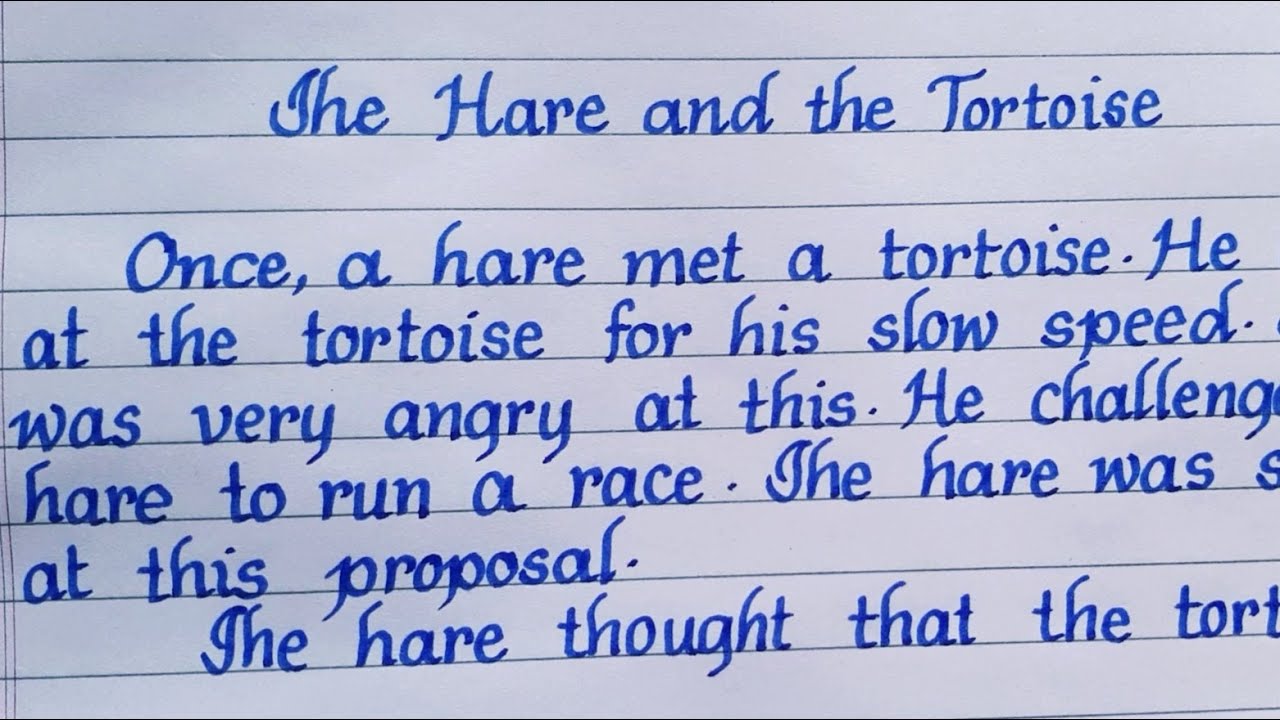 The Hare and the Tortoise
Once, a hare met a tortoise. He
at the tortoise for his slow speed.
was very angry at this. He challeng
hare to run a race. The hare was s
at this proposal.
The hare thought that the tort